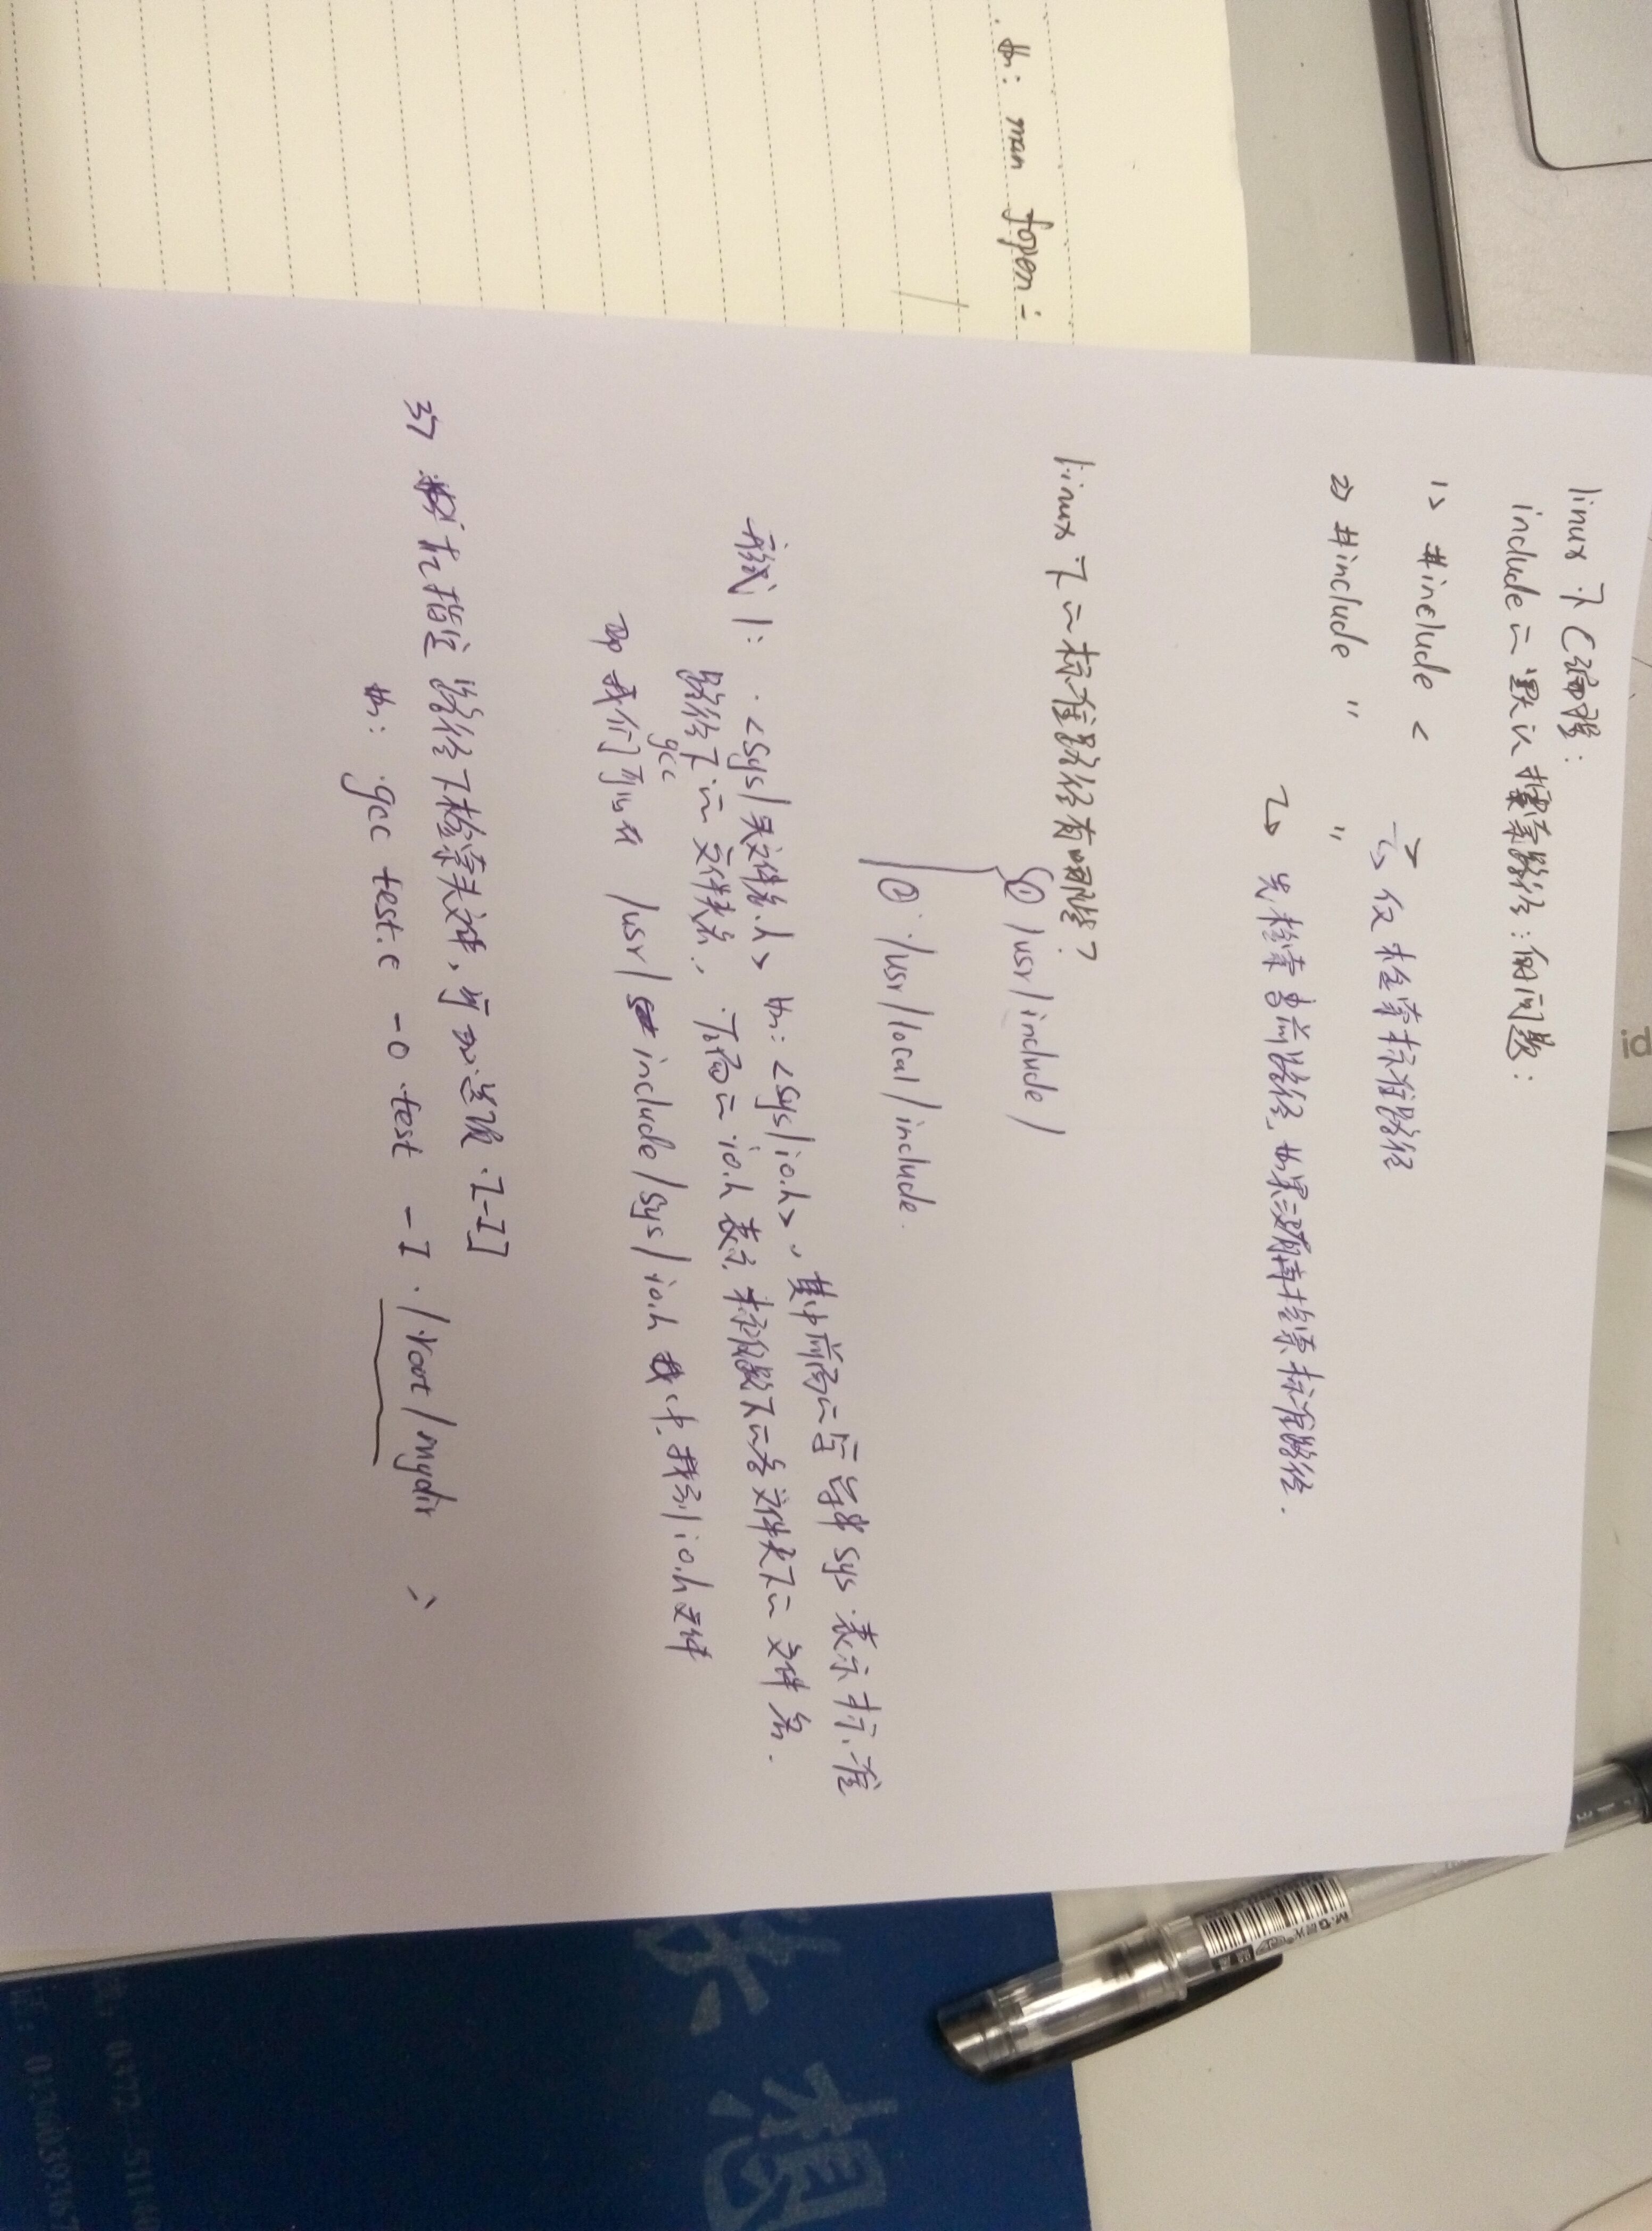 如: man fopen:
linux 下C编程:
include 的默认搜索路径的问题:
1> #include <
→ 仅检索标准路径
2> #include " "
↳ 先检索当前路径, 如果没有再检索标准路径.
linux 下的标准路径有哪些?
① /usr/include/
② /usr/local/include.
形式 1: <sys/头文件名.h> 如: <sys/io.h>, 其中前面的 sys 表示标准
路径下的文件夹名, 下面的 io.h 表示 下的 文件夹下的文件名.
即 我们可以在 /usr/include/sys/io.h 中 找到 io.h 文件
gcc
3> 在指定路径下检索头文件, 可加选项 [-I]
如: gcc test.c -o test -I ./root/mydir
想
M&G
id
0372-5114